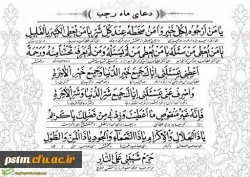 دعای ماه رجب
یا مَنْ اَرْجُوهُ لِکُلِّ خَیْرٍ وَ آمَنُ سَخَطَهُ عِنْدَ کُلِّ شَرٍّ یا مَنْ یُعْطِی الْکَثیرَ بِالْقَلیلِ
یا مَنْ یُعْطی مَنْ سَئَلَهُ یا مَنْ یُعْطی مَنْ لَمْ یَسْئَلْهُ وَ مَنْ لَمْ یَعْرِفْهُ تَحَنُّنًا مِنْهُ وَ رَحْمَةً
اَعْطِنی بِمَسْئَلَتی اِیّاکَ جَمیعَ خَیْرِ الدُّنْیا وَ جَمیعَ خَیْرِ الْآخِرَةِ
وَ اصْرِفْ عَنّی بِمَسْئَلَتی اِیّاکَ جَمیعَ شَرِّ الدُّنْیا وَ شَرِّ الْآخِرَةِ
فَاِنَّهُ غَیْرُ مَنْقُوصٍ ما اَعْطَیْتَ وَ زِدْنی مِنْ فَضْلِکَ یا کَریمُ
یا ذَا الْجَلالِ وَ الْاِکْرامِ یا ذَا النَّعْماءِ وَ الْجُودِ یا ذَا الْمَنِّ وَ الطَّوْلِ
حَرِّمْ شَیْبَتی عَلَی النّارِ
pstm.cfu.ac.ir